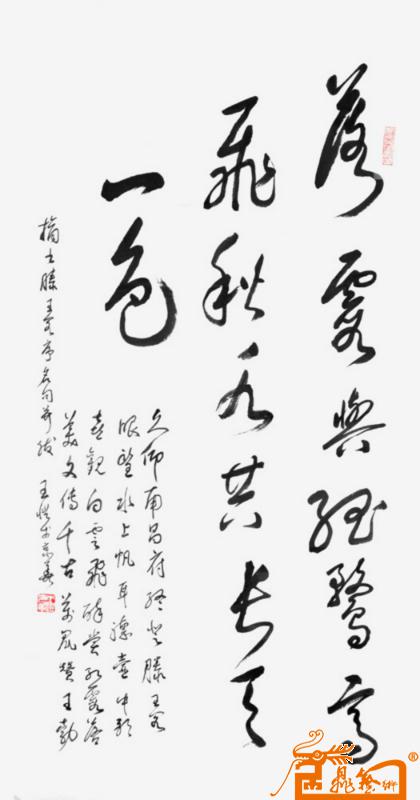 落霞與孤鶩齊
飛秋水共長天
一色
久仰南昌府終登滕王閣
眼望水上帆耳聽壺中歌
喜觀白雲飛 霞落
美文傳千古 贊王勃
滕王閣序名句并跋 王 於京華